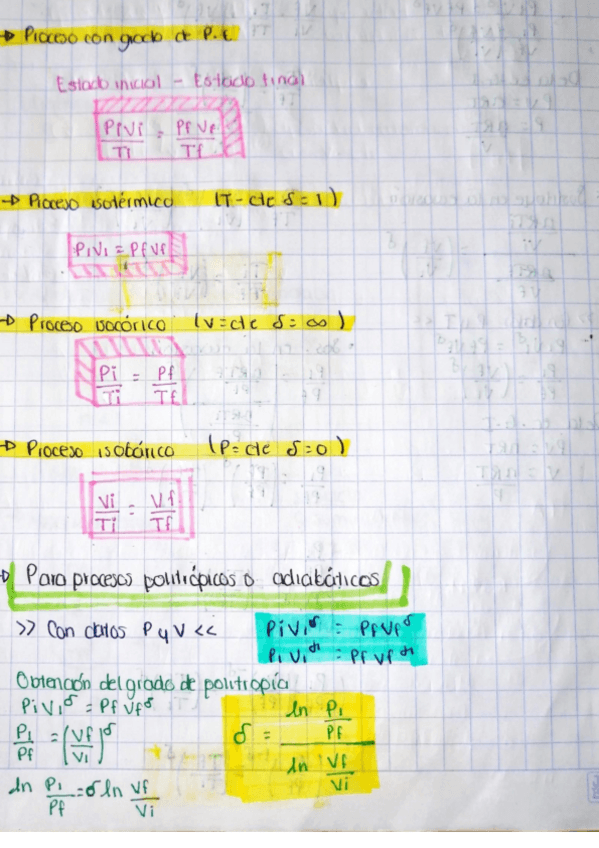 → Proceso con grado de P. E
Estado inicial - Estado final
PiVi / Ti = PfVf / Tf
→ Proceso isotérmico (T- cte δ = 1)
PiVi = PfVf
→ Proceso isocórico (V=cte δ = ∞)
Pi / Ti = Pf / Tf
→ Proceso isobárico (P= cte δ=0)
Vi / Ti = Vf / Tf
Para procesos politrópicos o adiabáticos
>> Con datos P y V <<
PiVi^δ = PfVf^δ
Obtención del grado de politropía
PiVi^δ = PfVf^δ
Pi / Pf = (Vf / Vi)^δ
ln Pi / Pf = δ ln Vf / Vi
δ = ln Pi / Pf / ln Vf / Vi